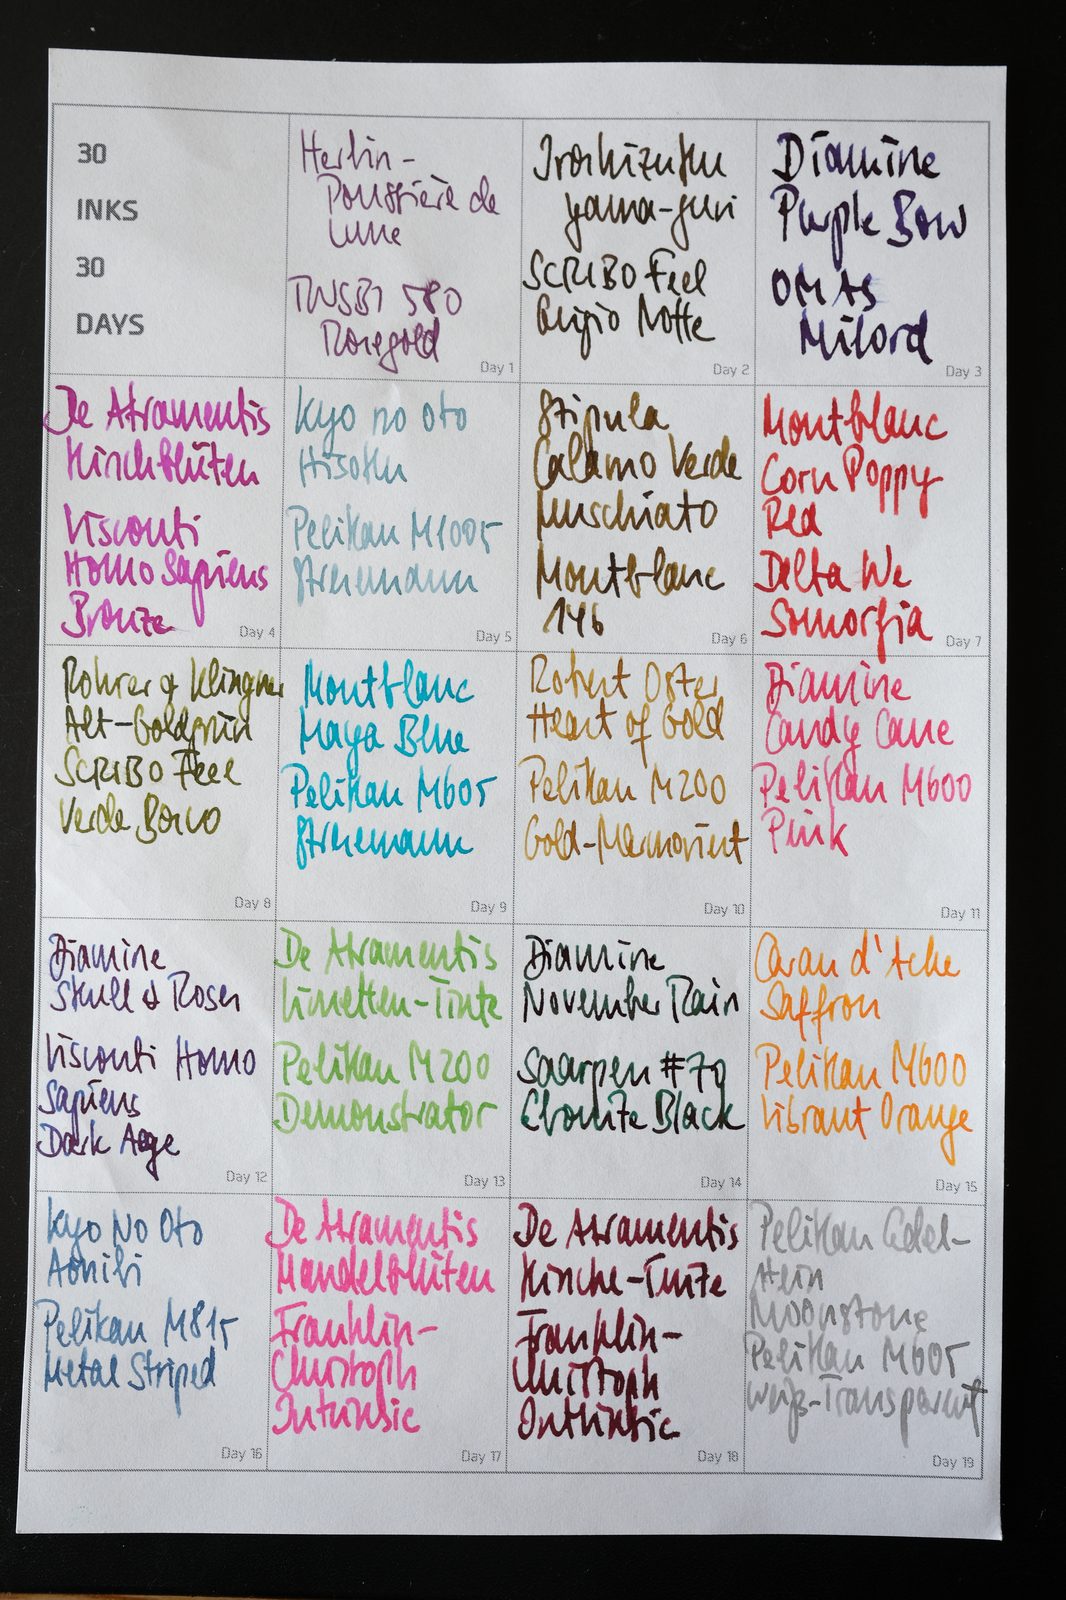 30
INKS
30
DAYS
Herbin-
Poussière de
Lune
TWSBI 580
Rosegold
Day 1
Iroshizuku
yama-guri
SCRIBO Feel
Grigio Notte
Day 2
Diamine
Purple Bow
OMAS
Milord
Day 3
De Atramentis
Kirschblüten
Visconti
Homo Sapiens
Bronze
Day 4
Kyo no oto
Hisoku
Pelikan M1005
Stresemann
Day 5
Stipula
Calamo Verde
Muschiato
Montblanc
146
Day 6
Montblanc
Corn Poppy
Red
Delta We
Smorfia
Day 7
Rohrer & Klingner
Alt-Goldgrün
SCRIBO Feel
Verde Bosco
Day 8
Montblanc
Maya Blue
Pelikan M605
Stresemann
Day 9
Robert Oster
Heart of Gold
Pelikan M200
Gold-Marmoriert
Day 10
Diamine
Candy Cane
Pelikan M600
Pink
Day 11
Diamine
Skull & Roses
Visconti Homo
Sapiens
Dark Age
Day 12
De Atramentis
Limetten-Tinte
Pelikan M200
Demonstrator
Day 13
Diamine
November Rain
Saarpen #79
Ebonite Black
Day 14
Caran d'Ache
Saffron
Pelikan M600
Vibrant Orange
Day 15
Kyo No Oto
Aonibi
Pelikan M815
Metal Striped
Day 16
De Atramentis
Mandelblüten
Franklin-
Christoph
Intrinsic
Day 17
De Atramentis
Kirsche-Tinte
Franklin-
Christoph
Intrinsic
Day 18
Pelikan Edel-
stein
Moonstone
Pelikan M605
Weiß-Transparent
Day 19